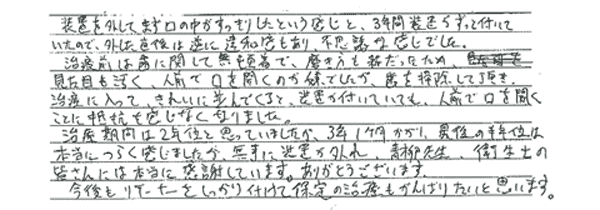 装置を外してまず口の中がすっきりしたという感じと、3年間装置がずっと付いて
いたので、外した直後は逆に違和感もあり、不思議な感じでした。
治療前は歯に関して無頓着で、磨き方も雑だったため、
見た目も汚く、人前で口を開くのが嫌でしたが、歯を掃除して頂き、
治療に入って、きれいに並んでくると、装置が付いていても、人前で口を開く
ことに抵抗を感じなくなりました。
治療期間は2年位と思っていましたが、3年1ヶ月かかり、最後の半年位は
本当につらく感じましたが、無事に装置が外れ、青柳先生、衛生士の
皆さんには本当に感謝しています。ありがとうございます。
今後もリテーナーをしっかり付けて保定の治療もがんばりたいと思います。